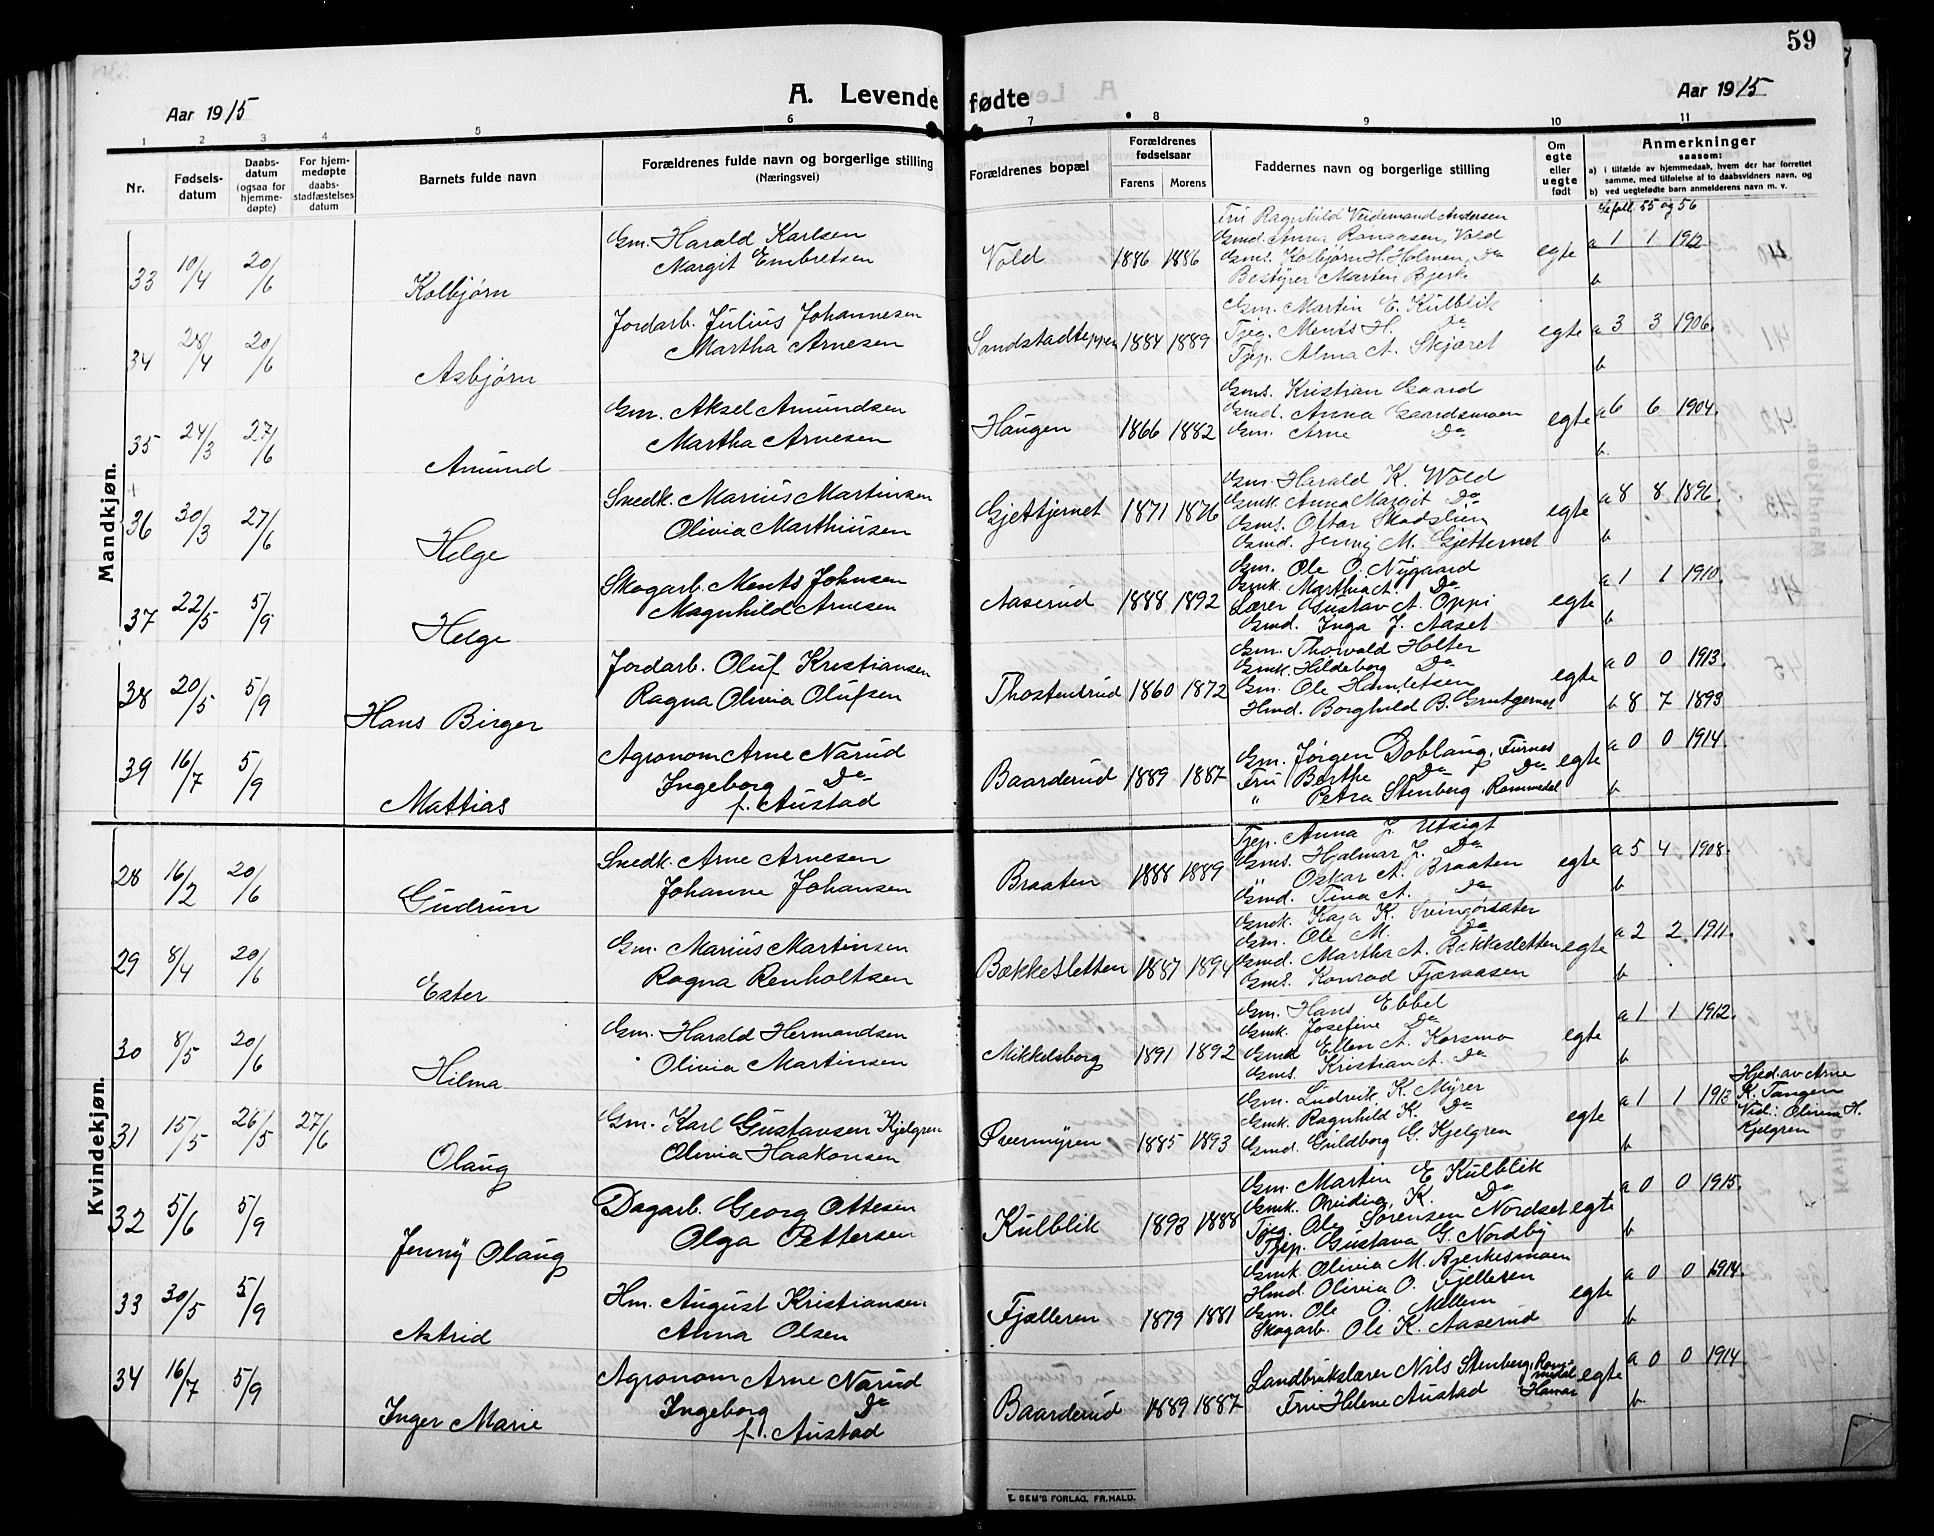 59
Aar 1915
A. Levende fødte
Aar 1915
1 2 3 4 5 6 7 8 9 10 11
Nr.
Fødsels-
datum
Daabs-
datum
(ogsaa for
hjemme-
døpte)
For hjem-
medøpte
daabs-
stadfæstelses
datum
Barnets fulde navn
Forældrenes fulde navn og borgerlige stilling
(Næringsvei)
Forældrenes bopæl
Forældrenes
fødselsaar
Farens Morens
Faddernes navn og borgerlige stilling
Om
egte
eller
uegte
født
Anmerkninger
saasom:
a) i tilfælde av hjemmedaab, hvem der har forrettet
samme, med tilføielse af to daabsvidners navn, og
b) ved uegtefødte barn anmelderens navn m. v.
55 og 56
Mandkjøn.
33 10/4 20/6 Kolbjørn
Gm. Harald Karlsen
Margit Embretsen
Vold 1886 1886
Fru Ragnhild Veidemand Andersen
Gmd. Anna Vold
Gms. Kolbjørn H. Holmen, Do
Bestyrer Marten Bjerk
egte a 1 1 1912
b
34 28/4 20/6 Asbjørn
Jordarb. Julius Johannesen
Martha Arnesen
Sandstadteppen 1884 1889
Gm. Martin E. Kulblik
Tjeg. Ments H. Do
Tjep. Alma A. Skjæret
egte a 3 3 1906.
b
35 24/3 27/6 Amund
Gm. Aksel Amundsen
Martha Arnesen
Haugen 1866 1882
Gms. Kristian Gaard
Gmd. Anna Gaardsmoen
Gm. Arne Do
egte a 6 6 1904.
b.
36 30/3 27/6 Helge
Snedk. Marius Martinsen
Olivia Marthinsen
Gjettjernet 1871 1876
Gm. Harald K. Wold
Gmk. Anna Margit Do
Gms. Ottar Skadslien
Gmd. Jenny M. Gjetternet
egte a 8 8 1896.
b
37 22/5 5/9 Helge
Skogarb. Ments Johnsen
Magnhild Arnesen
Aaserud 1888 1892
Gm. Ole O. Nygaard
Gmk. Marthia A. Do
Lærer Gustav A. Oppi
Gmd. Inga J. Aaset
egte a 1 1 1910.
b
38 20/5 5/9 Hans Birger
Jordarb. Oluf Kristiansen
Ragna Olivia Olufsen
Thostensrud 1860 1872
Gm. Thorvald Holter
Gmk. Hildeborg Do
Gm. Ole Hamletsen
Hmd. Borghild B.
egte a 0 0 1913.
b 8 7 1893
39 16/7 5/9 Mattias
Agronom Arne Narud
Ingeborg Do
f. Austad
Baarderud 1889 1887
Gm. Jørgen Doblaug, Furnes
Fru Berthe Do Do
" Petra Stenberg, Rommedal
egte a 0 0 1914
b
Kvindekjøn.
28 16/2 20/6 Gudrun
Snedk. Arne Arnesen
Johanne Johansen
Braaten 1888 1889
Tjep. Anna J. Utsigt
Gms. Hjalmar J. Do
" Oskar A. Braaten
Gmd. Tina A. Do
egte a 5 4 1908.
b
29 8/4 20/6 Ester
Gm. Marius Martinsen
Ragna Renholtsen
Bækkesletten 1887 1894
Gmk. Kaja K.
Gm. Ole M. Do
Gmd. Martha A. Bækkesletten
Gms. Konrad Fjæraasen
egte a 2 2. 1911.
b
30 8/5 20/6 Hilma
Gm. Harald Hermandsen
Olivia Martinsen
Mikkelsborg 1891 1892
Gm. Hans Ebbel
Gmk. Josefine Do
Gmd Ellen A. Korsmo
Gms. Kristian A. Do
egte a 1 1 1912.
b
31 15/5 26/5 27/6 Olaug
Gm. Karl Gustavsen Kjelgren
Olivia Haakonsen
Øvermyren 1885 1893
Gm. Ludvik K. Myrer
Gmk. Ragnhild K. Do
Gmd. Guldborg G. Kjelgren
egte a 1 1 1913
b
Hjed. av Arne
K. Tangen
Vid.: Olivia H.
Kjelgren
32 5/6 5/9 Jenny Olaug
Dagarb. Georg Ottesen
Olga Pettersen
Kulblik 1893 1888
Gm. Martin E Kulblik
Gmk. K. Do
Tjeg. Ole Sørensen Nordset
Tjep. Gustava G. Nordby
egte a 0 0 1915.
b
33 30/5 5/9 Astrid
Hm. August Kristiansen.
Anna Olsen
Fjælleren 1879 1881
Gmk. Olivia M. Bjerkesmoen
Hmd. Olivia O. Fjelleren
Gm. Ole O. Mellem
Skogarb. Ole K. Aaserud
egte a 0 0 1914.
b
34 16/7 5/9 Inger Marie
Agronom Arne Narud
Ingeborg Do
f. Austad
Baarderud 1889 1887
Landbrukslærer Nils Stenberg, Rommedal
Fru Helene Austad Hamar
egte a 0 0 1914
b.
E. SEM'S FORLAG, FR.HALD.